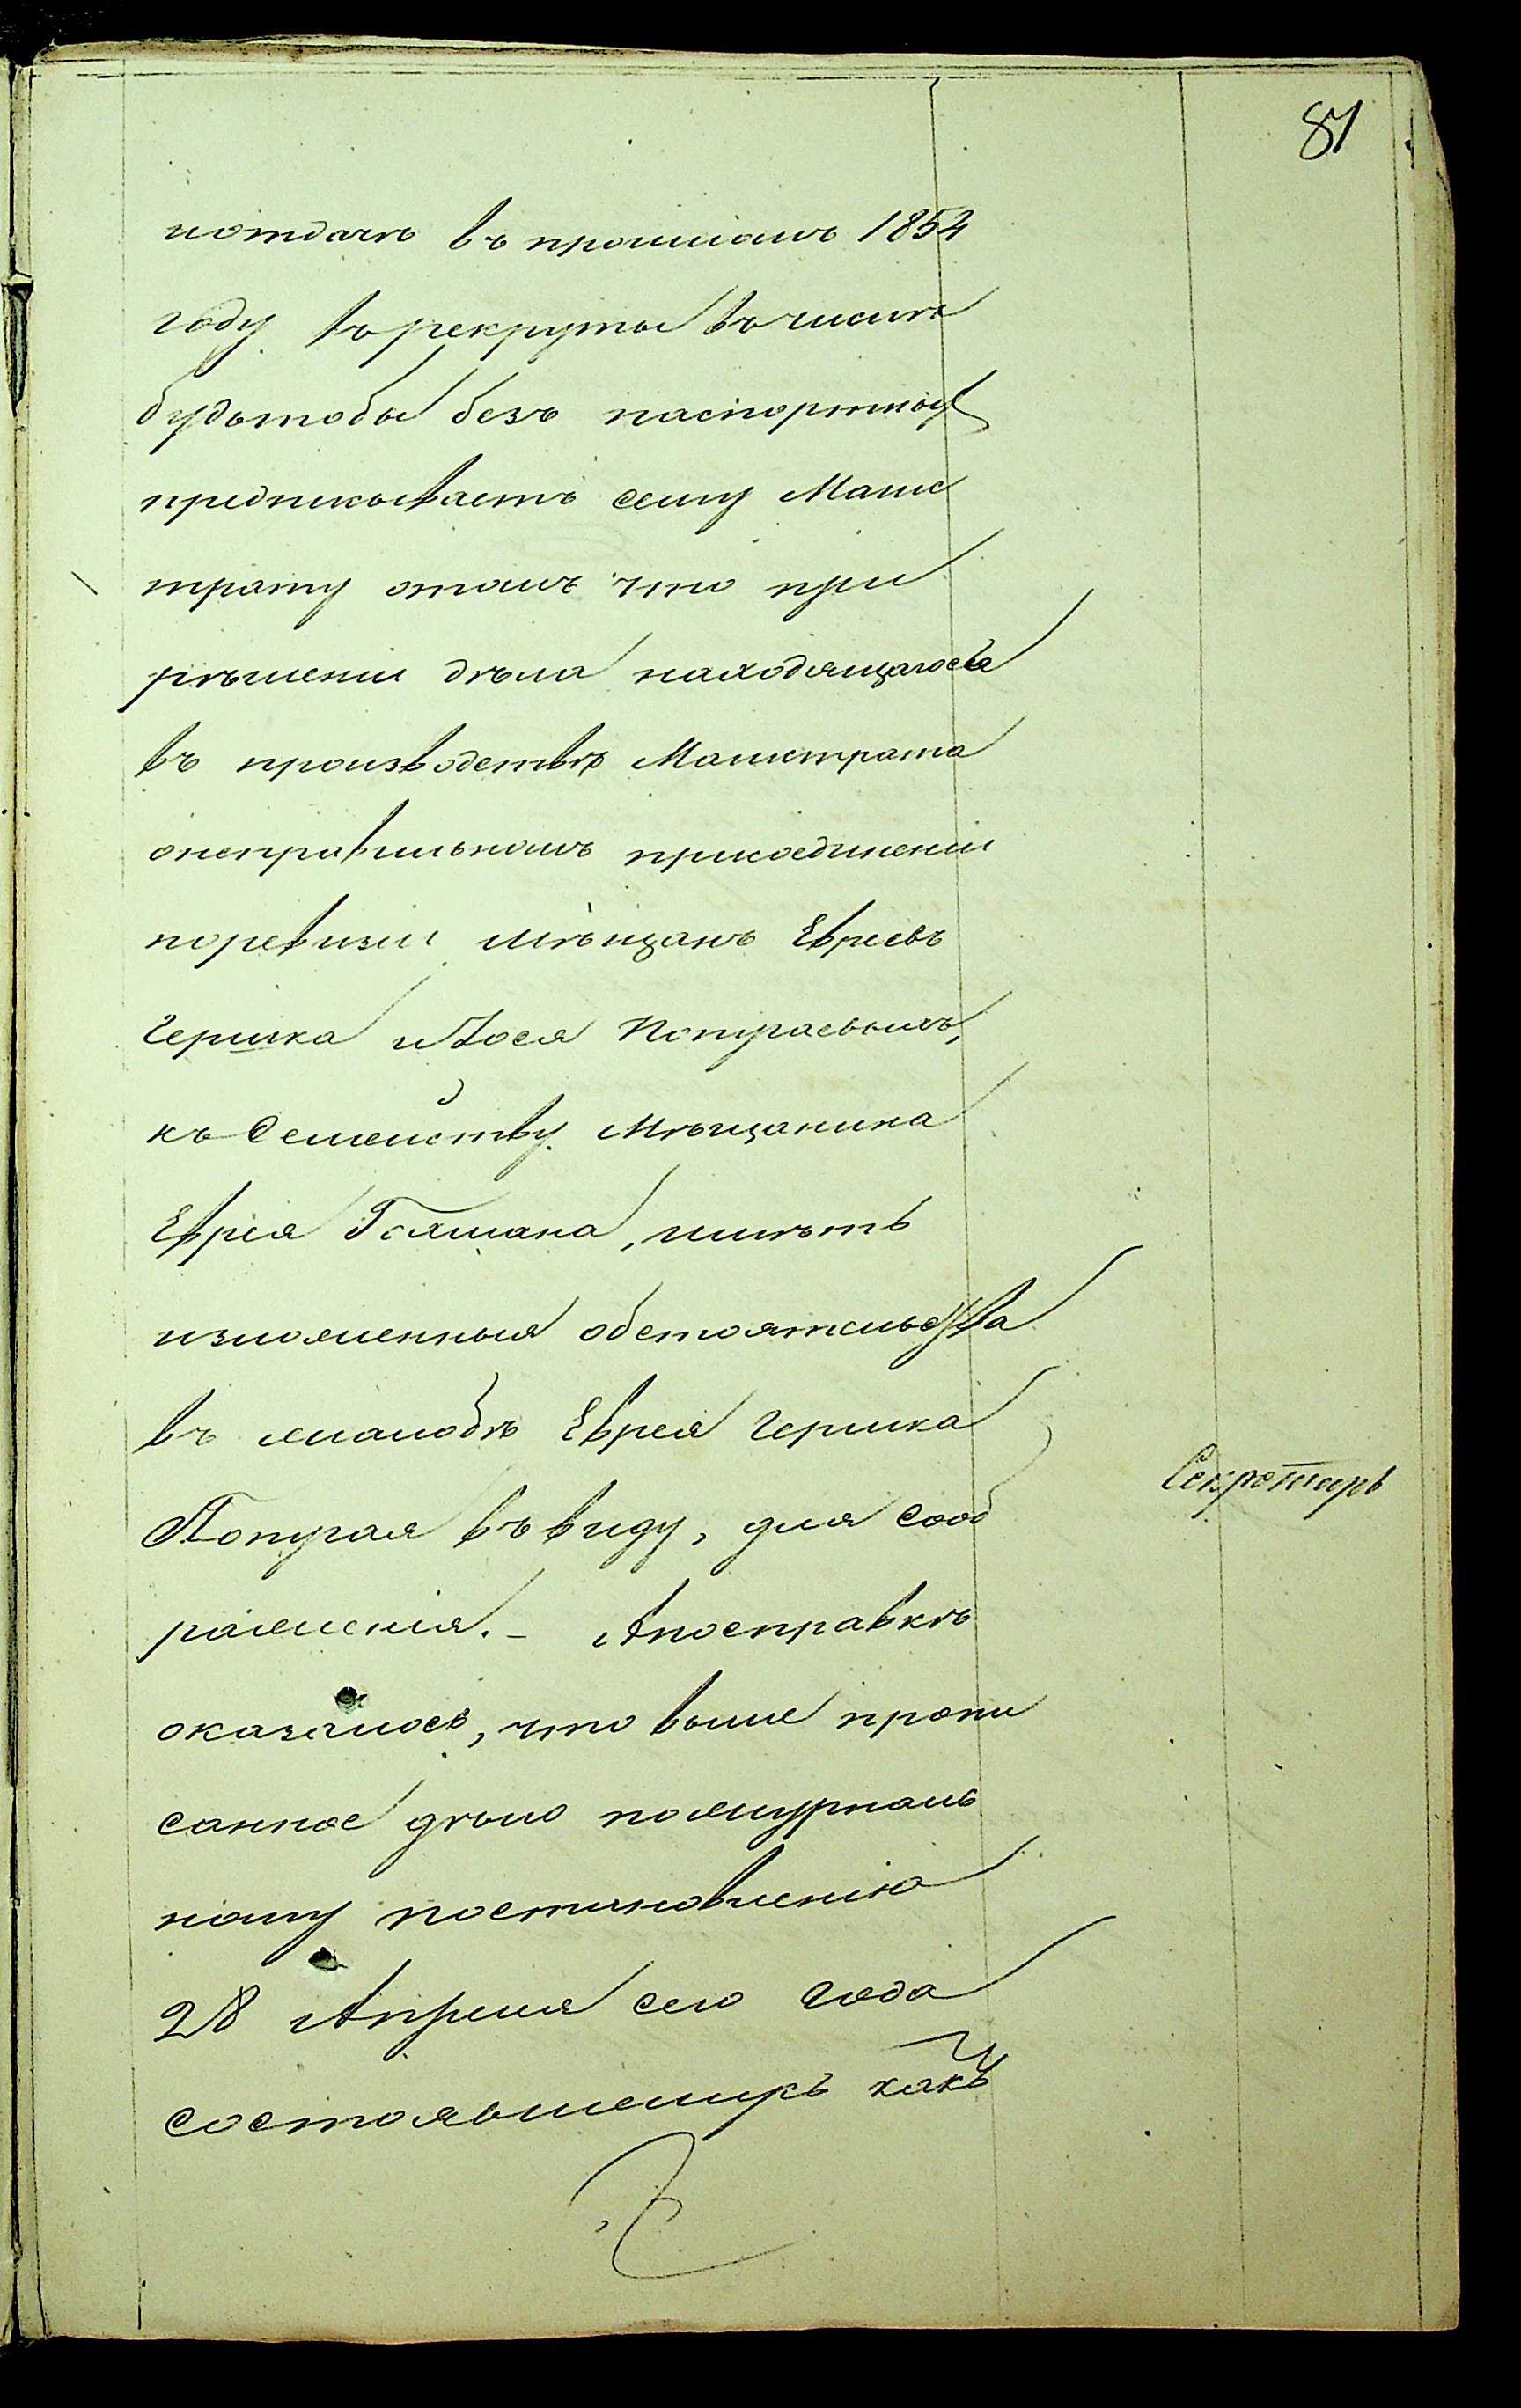 81
иотдачѣ въ прошломъ 1854
году въ рекруты въ числѣ
будьтобы безъ паспортныхъ
предписываетъ сему Магис
трату отомъ что при
рѣшеніи дѣла находящагося
въ производствѣ Магистрата
онеправильномъ присоединеніи
поревизіи мѣщанъ Евреевъ
Гершка иІося Попураевыхъ,
къ Семейству Мѣщанина
Еврея Гольмана, имѣть
изложенныя обстоятельства
въ жалобѣ Еврея Гершка
Попурая въ виду, для сооб
раженія. – Апосправкѣ
оказалось, что выше пропи
санное дѣло пожурналь
ному постановленію
28 Апреля сего года
состоявшемуся какъ
Секретарь